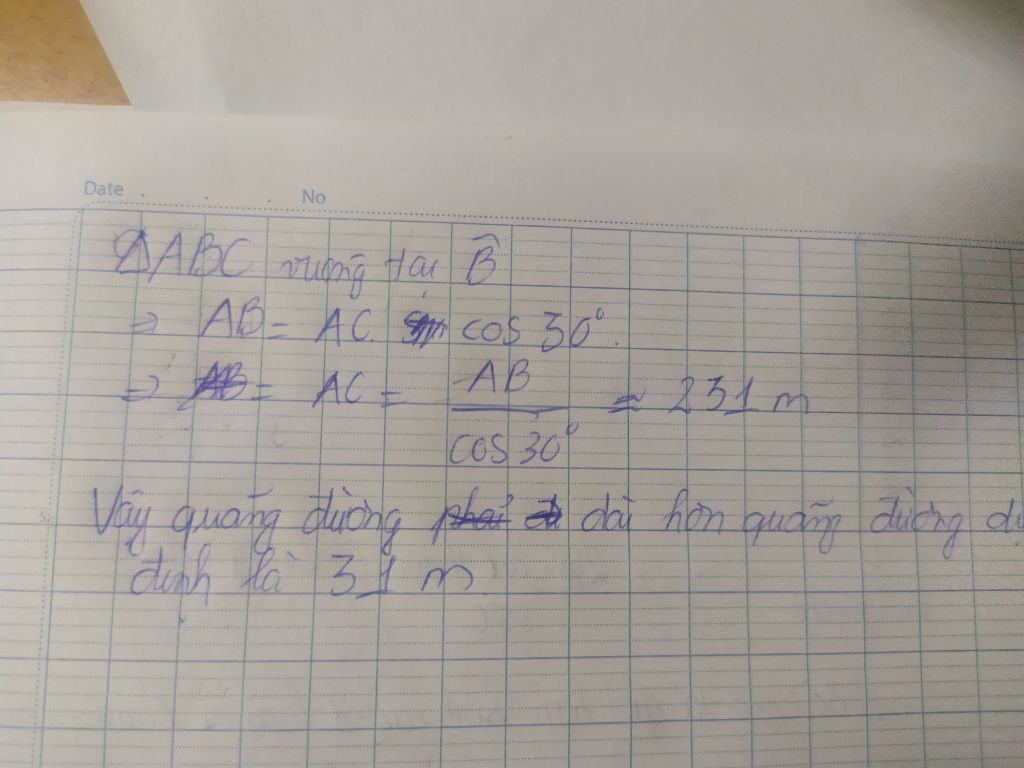 Date . . . No
ΔABC vuông tại B̂
⇒ AB = AC. cos 30°.
⇒ = AC = AB / cos 30° ≈ 231 m
Vậy quãng đường dài hơn quãng đường dự
định là 31 m